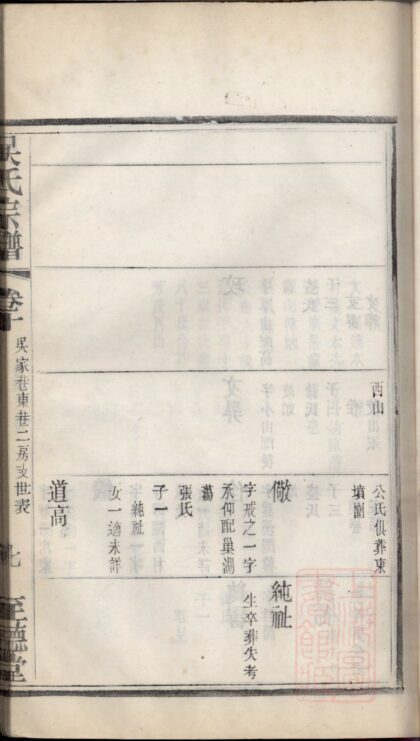 西山
公氏俱葬東
墳園
儆
字戒之一字
永仰配巢湖
張氏
子一
純祉
女一適未詳
道高
純祉
生卒葬失考
吴氏宗譜
卷十
吳家巷東巷二房
世表
七
至德堂